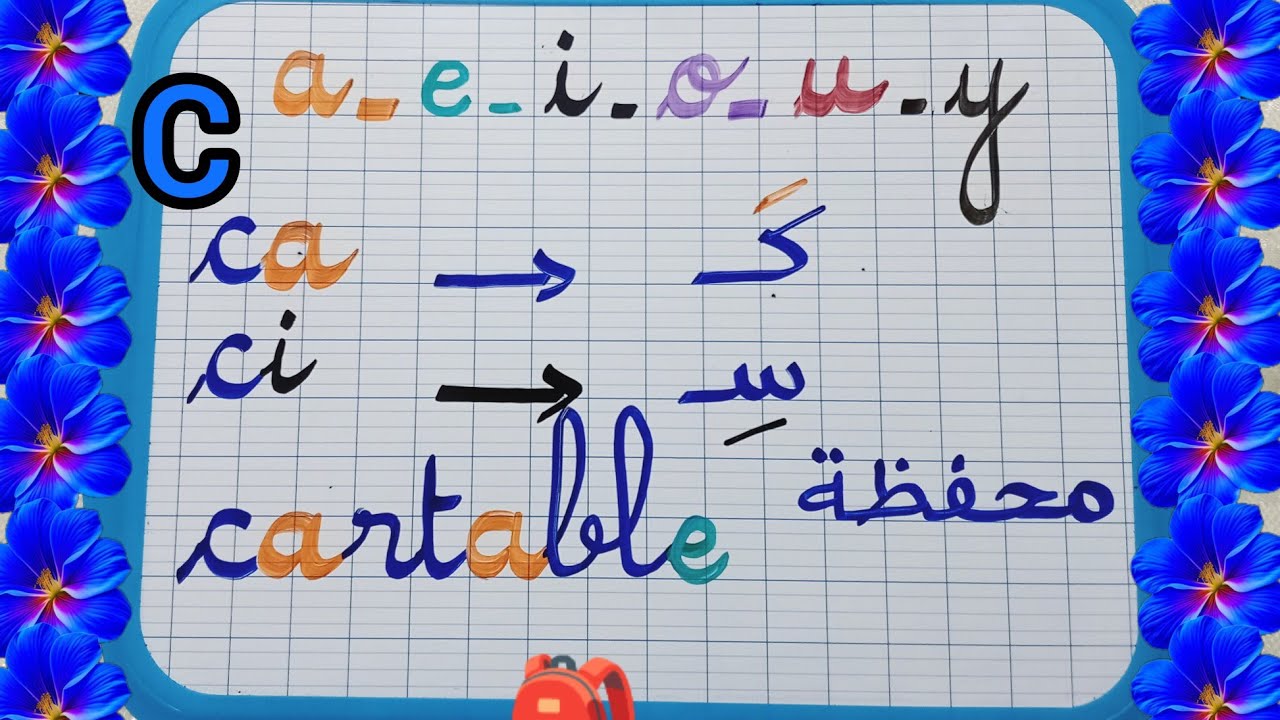 C
a - e - i - o - u - y
ca → كَـ
ci → سِـ
cartable محفظة